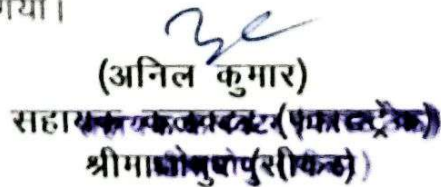 गया।
(अनिल कुमार)
सहायक कलक्टर (फास्ट्रेक)
श्रीमाधोपुर (सीकर)